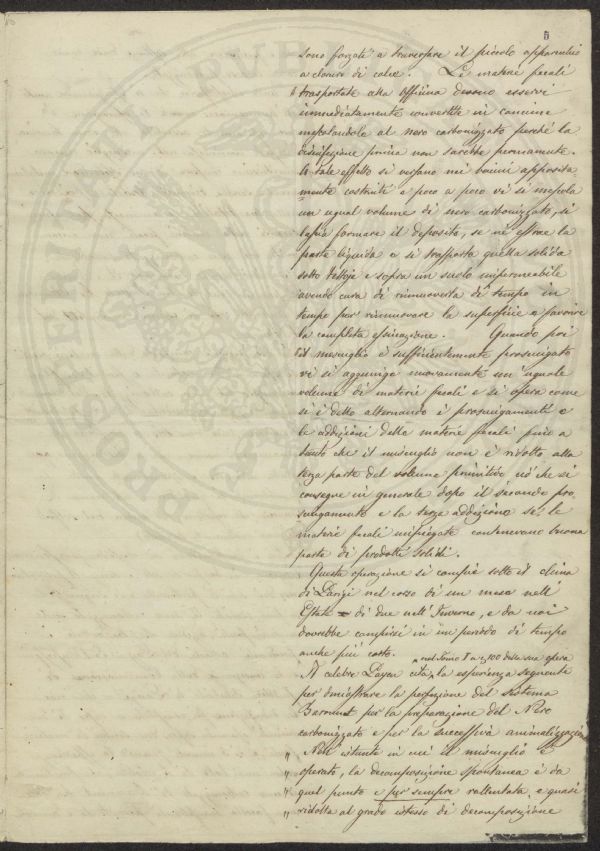 5
sono forzate a traversare il piccolo apparecchio
a cloruro di calce. Le materie fecali
trasportate alla Officina devono esservi
immediatamente convertite in concime
mescolandole al nero carbonizzato perchè la
disinfezione prima non sarebbe permanente.
A tale effetto si versano nei bacini apposita-
mente costruiti e poco a poco vi si mescola
un ugual volume di nero carbonizzato, si
lascia formare il deposito, se ne estrae la
parte liquida e si trasporta quella solida
sotto tettoje e sopra un suolo impermeabile
avendo cura di rimuoverla di tempo in
tempo per rinnovare la superficie e favorire
la completa essicazione. Quando poi
il mescuglio è sufficientemente prosciugato
vi si aggiunge nuovamente un uguale
volume di materie fecali e si opera come
si è detto alternando i prosciugamenti e
le addizioni delle materie fecali fino a
tanto che il miscuglio non è ridotto alla
terza parte del volume primitivo ciò che si
consegue in generale dopo il secondo pro
sciugamento e la terza addizione se le
materie fecali impiegate contenevano buona
parte di prodotti solidi.
Questa operazione si compie sotto il clima
di Parigi nel corso di un mese nell'
Estate di due nell'Inverno, e da noi
dovrebbe compirsi in un periodo di tempo
anche più corto.
nel Tomo I a 500 della sua opera
Il celebre Payen cita la esperienza seguente
per dimostrare la perfezione del sistema
per la preparazione del Nero
carbonizzato e per la successiva animalizzazione
" Nell'istante in cui il miscuglio è
" operato, la decomposizione spontanea è da
" quel punto e per sempre rallentata, e quasi
" ridotta al grado istesso di decomposizione